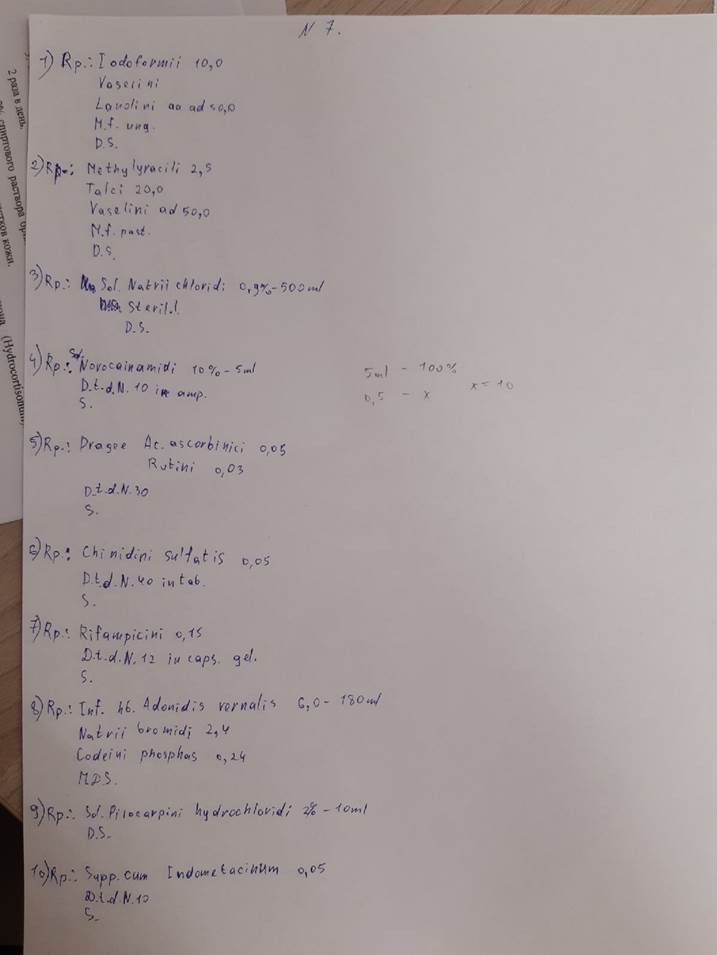 N 7.
1) Rp.: Iodoformii 10,0
Vaselini
Lanolini aa ad 50,0
M.f. ung.
D.S.
2) Rp.: Methyluracili 2,5
Talci 20,0
Vaselini ad 50,0
M.f. past.
D.S.
3) Rp.: Sol. Natrii chloridi 0,9% - 500 ml
Steril.!
D.S.
4) Rp.: Sol. Novocainamidi 10% - 5ml
D.t.d.N. 10 in amp.
S.
5ml - 100%
0,5 - x x = 10
5) Rp.: Dragee Ac. ascorbinici 0,05
Rutini 0,03
D.t.d.N.30
S.
6) Rp.: Chinidini sulfatis 0,05
D.t.d.N.40 in tab.
S.
7) Rp.: Rifampicini 0,15
D.t.d.N.12 in caps. gel.
S.
8) Rp.: Inf. hb. Adonidis vernalis 6,0 - 180 ml
Natrii bromidi 2,4
Codeini phosphas 0,24
MDS.
9) Rp.: Sol. Pilocarpini hydrochloridi 2% - 10ml
D.S.
10) Rp.: Supp. cum Indometacinum 0,05
D.t.d.N.10
S.
2 раза в день.
спиртового раствора
кожи.
(Hydrocortisonum